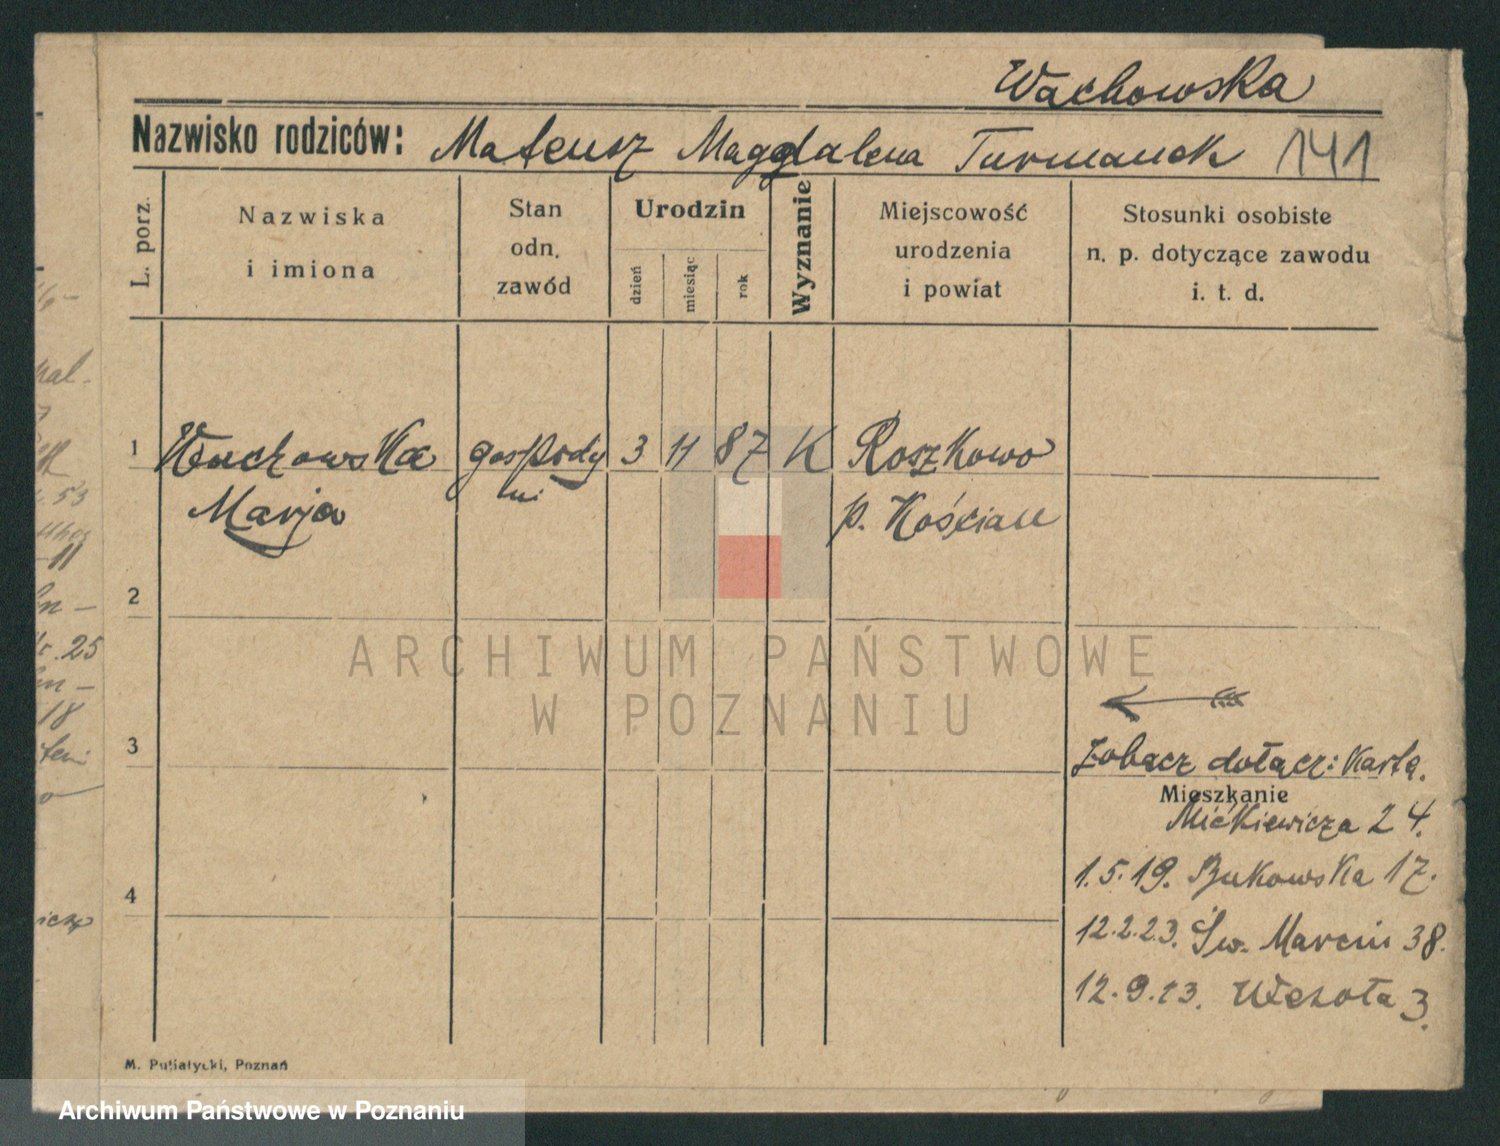 Wachowska
Nazwisko rodziców: Mateusz Magdalena Turmanek 141
L. porz.
Nazwiska
i imiona
Stan
odn.
zawód
Urodzin
dzień
miesiąc
rok
Wyznanie
Miejscowość
urodzenia
i powiat
Stosunki osobiste
n. p. dotyczące zawodu
i. t. d.
1 Wachowska gospody 3 11 87 K Roszkowo
Marja ni p. Kościan
2
3
4
Zobacz dołącz: Kartę.
Mieszkanie
Mickiewicza 24.
1.5.19. Bukowska 17.
12.2.23. Św. Marcin 38.
12.9.23. Wesoła 3.
M. Putiatycki, Poznań
ARCHIWUM PAŃSTWOWE
W POZNANIU
Archiwum Państwowe w Poznaniu
53
11
25
18